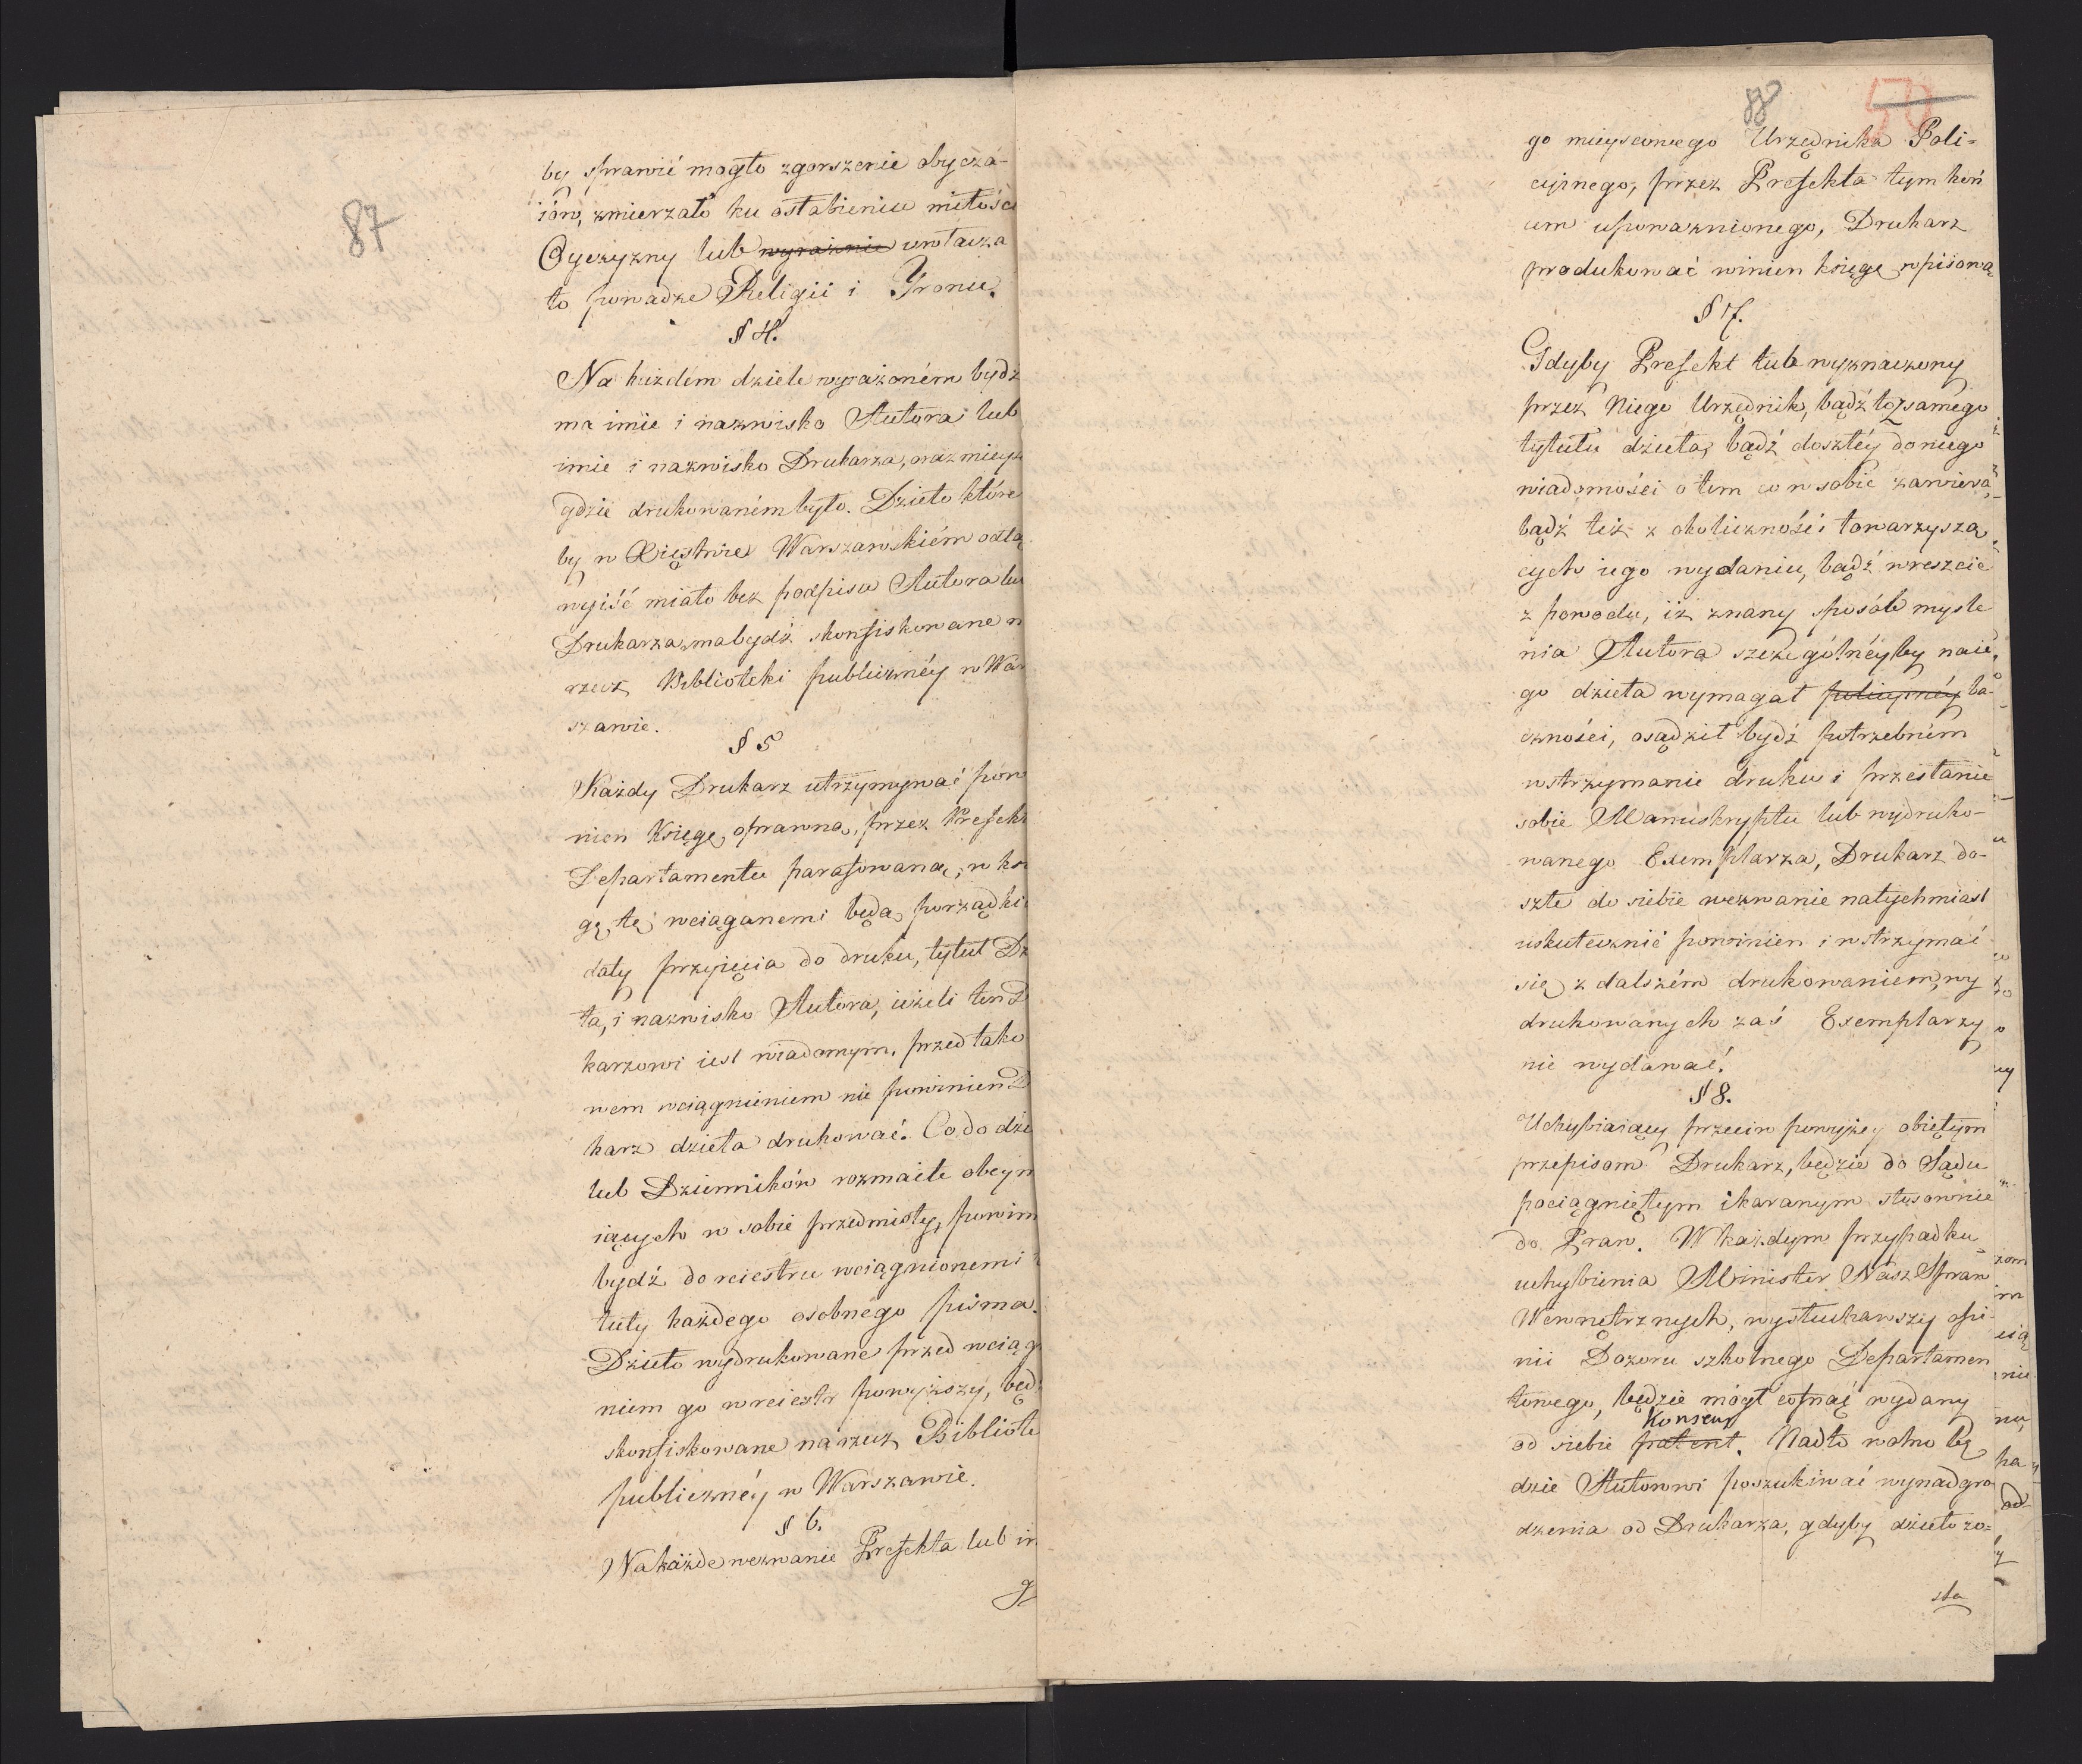 87
by sprawić mogło zgorszenie obycza-
iów, zmierzało ku osłabieniu miłości
Oyczyzny lub wyraźnie uwłacza
ło powadze Religii i Tronu.
§ 4.
Na każdém dziele wyrażoném bydź
ma imie i nazwisko Autora lub
imie i nazwisko Drukarza, oraz mieys
gdzie drukowaném było. Dzieło które
by w Xięstwie Warszawskiém odtą
wyiść miało bez podpisu Autora lu
Drukarza, ma bydź skonfiskowane n
rzecz Biblioteki publicznéy w War
szawie.
§ 5
Każdy Drukarz utrzymywać pow
nien Księgę oprawną, przez Prefekt
Departamentu parafowaną; w ksi
gę tę wciąganemi będą porządki
daty przyięcia do druku, tytuł Dz
ła, i nazwisko Autora, ieżeli ten D
karzowi iest wiadomym. przed tako
wem wciągnieniem nie powinien D
karz dzieła drukować. Co do dzie
lub Dzienników rozmaite obeym
iących w sobie przedmioty, powinn
bydź do reiestru wciągnionemi
tuły każdego osobnego pisma.
Dzieło wydrukowane przed wciąg
niem go w reiestr powyższy, będ
skonfiskowane na rzecz Bibliote
publicznéy w Warszawie.
§ 6.
Na każde wezwanie Prefekta lub in
g
88
50
go mieyscowego Urzędnika Poli-
cyinego, przez Prefekta tym koń
cem upoważnionego, Drukarz
produkować winien księgę wpisową
§ 7.
Gdyby Prefekt lub wyznaczony
przez Niego Urzędnik, bądź to z samego
tytułu dzieła, bądź doszłéy do niego
wiadomości o tem co w sobie zawiera,
bądź też z okoliczności towarzyszą
cych iego wydaniu, bądź wreszcie
z powodu, iż znany sposób myśle
nia Autora szczególnéy by na ie
go dzieła wymagał policyinéy ba-
czności, osądził bydź potrzebném
wstrzymanie druku i przesłanie
sobie Manuskryptu lub wydruko-
wanego Exemplarza, Drukarz do-
szłe do siebie wezwanie natychmiast
uskutecznić powinien i wstrzymać
się z dalszém drukowaniem, wy
drukowanych zaś Exemplarzy
nie wydawać.
§ 8.
Uchybiaiący przeciw powyżey obiętym
przepisom Drukarz, będzie do Sądu
pociągniętym i karanym stosownie
do Praw. W każdym przypadku
uchybienia Minister Nasz Spraw
Wewnętrznych, wysłuchawszy opi-
nii Dozoru szkolnego Departamen
towego, będzie mógł cofnąć wydany
Konsens
od siebie patent. Nadto wolno bę
dzie Autorowi poszukiwać wynadgro
dzenia od Drukarza, gdyby dzieło zo=
sta